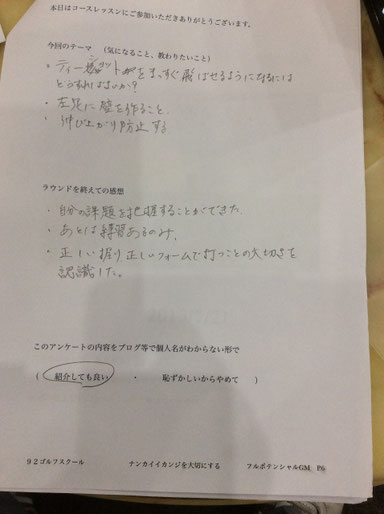 本日はコースレッスンにご参加いただきありがとうございます。
今回のテーマ　（気になること、教わりたいこと）
・ティーショットがをまっすぐ飛ばせるようになるには
どうすればよいか？
・左足に壁を作ること。
・伸び上がり防止する
ラウンドを終えての感想
・自分の課題を把握することができた
・あとは練習あるのみ、
・正しい握り正しいフォームで打つことの大切さを
認識した。
このアンケートの内容をブログ等で個人名がわからない形で
（　紹介しても良い　・　恥ずかしいからやめて　）
９２ゴルフスクール　ナンカイイカンジを大切にする　フルポテンシャルGM